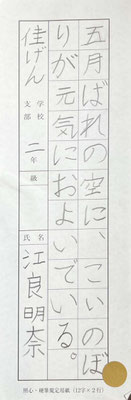 五月ばれの空に、こいのぼ
りが元気におよいでいる。
学校
支部
佳げん
二年
級
氏名
江良明奈
照心・硬筆鑑定用紙(12字×2行)